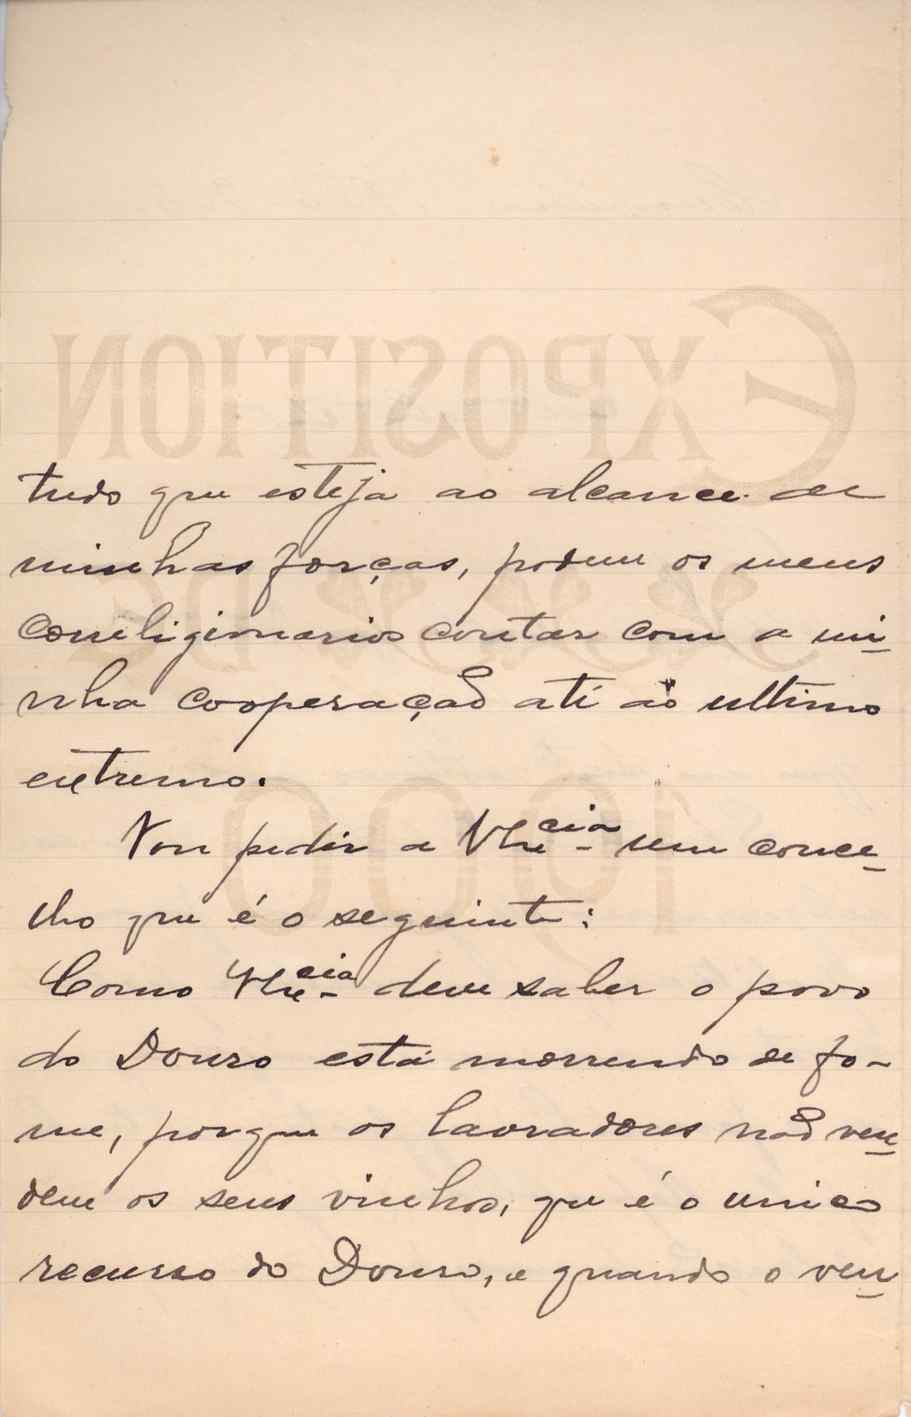 tudo que esteja ao alcance de
minhas forças, podem os meus
correligionarios contar com a mi-
nha cooperação até ao ultimo
extremo.
Vou pedir a VExcia um conce-
lho que é o seguinte:
Como VExcia deve saber o povo
do Douro está morrendo de fo-
me, porque os lavradores não ven-
dem os seus vinhos, que é o unico
recurso do Douro, e quando o ven-
EXPOSITION
DE
1900